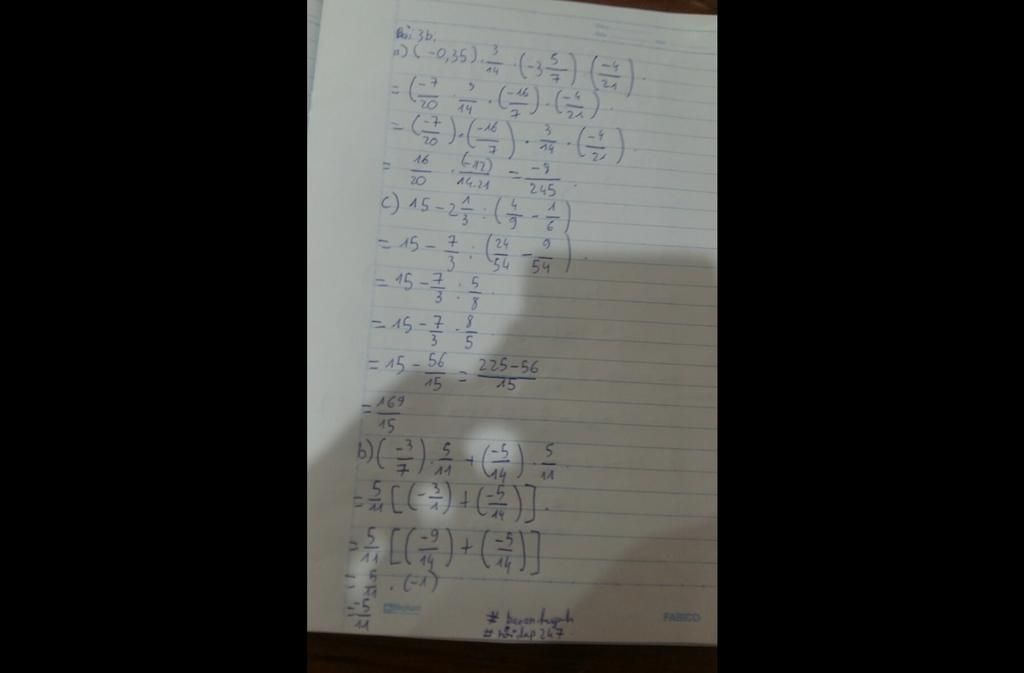 Bài 3b.
a) (-0,35) . 3/14 . (-3 5/7) . (-4/21).
= (-7/20 . 3/14 . (-16/7) . (-4/21).
= (-7/20) . (-16/7) . 3/14 . (-4/21).
= 16/20 . (-12)/14.21 = -8/245.
c) 15 - 2 1/3 : (4/9 - 1/6)
= 15 - 7/3 : (24/54 - 9/54).
= 15 - 7/3 : 5/8.
= 15 - 7/3 . 8/5.
= 15 - 56/15 = 225-56/15
= 169/15
b) (-3/7) . 5/11 + (-5/14) . 5/11.
= 5/11 [(-3/1) + (-5/14)].
= 5/11 [(-9/14) + (-5/14)]
= 5/11 . (-1)
= -5/11
FABICO
# hoidap247